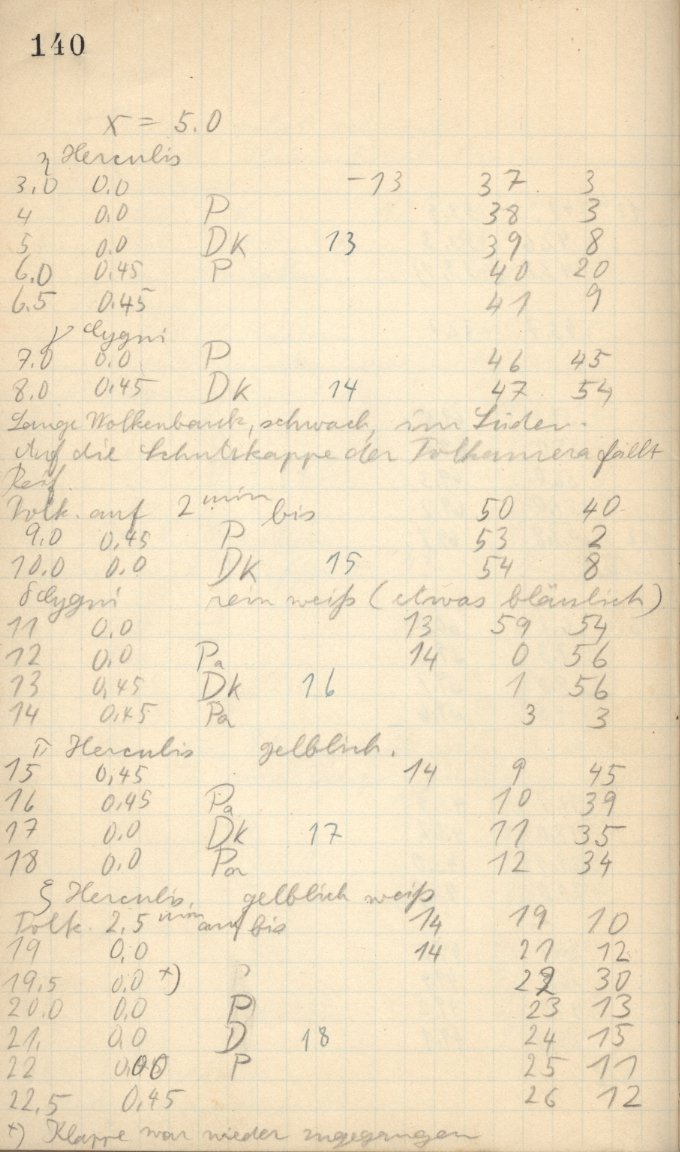 140
x = 5.0
η Herculis
3.0 0.0 -13 37 3
4 0.0 P 38 3
5 0.0 DK 13 39 8
6.0 0.45 P 40 20
6.5 0.45 41 9
γ Cygni
7.0 0.0 P 46 45
8.0 0.45 DK 14 47 54
Lange Wolkenbank, schwach, im Süden.
Auf die Schutzkappe der Folkamera fällt
Reif.
Folk. auf 2 min bis 50 40
9.0 0.45 P 53 2
10.0 0.0 DK 15 54 8
δ Cygni rein weiß (etwas bläulich)
11 0.0 13 59 54
12 0.0 Pa 14 0 56
13 0.45 DK 16 1 56
14 0.45 Pa 3 3
π Herculis gelblich.
15 0.45 14 9 45
16 0.45 Pa 10 39
17 0.0 DK 17 11 35
18 0.0 Pa 12 34
ξ Herculis, gelblich weiß
Folk. 2.5 min auf bis 14 19 10
19 0.0 14 21 12
19.5 0.0 +) P 22 30
20.0 0.0 P 23 13
21. 0.0 D 18 24 15
22 0.00 P 25 11
22.5 0.45 26 12
+) Klappe war wieder zugegangen